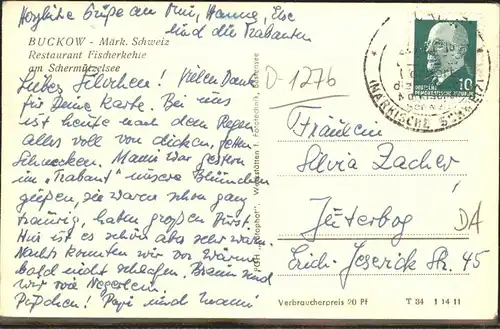 Herzliche Grüße an Omi, Hanne, Ilse
und die Trabanten
BUCKOW - Märk. Schweiz
Restaurant Fischerkehle
am Schermützelsee
Liebes Silvchen! Vielen Dank
für Deine Karte. Bei uns
ist heute nach dem Regen
alles voll von dicken, fetten
Schnecken. Mami war gestern
im „Trabant" unsere Blümchen
gießen, sie waren schon ganz
traurig, haben großen Durst.
Hier ist es schön aber sehr warm.
Nachts konnten wir vor Wärme
bald nicht schlafen. Braun sind
wir wie Negerlein.
Püppchen! Papi und Mami
D-1276
10
DEUTSCHE
DEMOKRATISCHE REPUBLIK
(MÄRKISCHE SCHWEIZ)
Fräulein
Silvia Zacher
Jüterbog
Erich-Jeserick Str. 45
DA
Verbraucherpreis 20 Pf
T 84 1 14 11